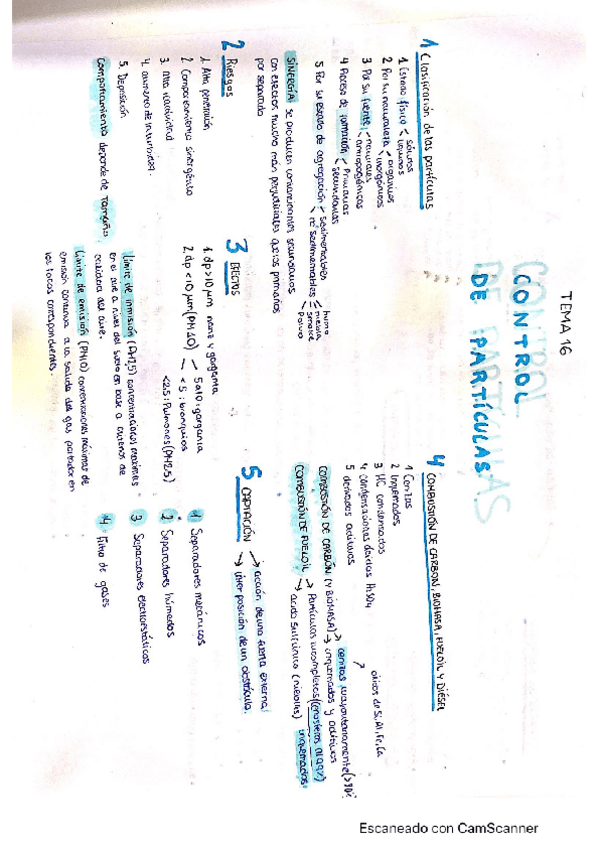 TEMA 16
CONTROL
DE PARTÍCULAS
1 Clasificación de las partículas
1 Estado físico < sólidos
líquidos
2 Por su naturaleza < orgánicos
inorgánicos
3 Por su fuente < naturales
antropogénicas
4 Proceso de formación < Primarias
secundarias
5 Por su estado de agregación < sedimentables
no sedimentables < humo
niebla
smoke
Polvo
SINERGIA se producen contaminantes secundarios
con efectos mucho más perjudiciales que los primarios
por separado
2 Riesgos
1. Alta penetración
2 Comportamiento sinergético
3. Alta reactividad
4. aumento de la turbiedad.
5. Deposición
Comportamiento depende de Tamaños
3 EFECTOS
1. dp>10µm nariz y garganta
2. dp<10µm (PM10) — 5 a 10: garganta
<5: bronquios
<2.5: Pulmones (PM2.5)
Límite de inmisión (PM2,5) concentraciones máximas
en el aire a nivel del suelo en base a criterios de
calidad del aire.
Límite de emisión (PM10) concentraciones máximas de
emisión continua a la salida del gas portador en
los focos correspondientes.
4 COMBUSTIÓN DE CARBÓN, BIOMASA, FUELOIL Y DIÉSEL
1 Cenizas
2 Inquemados
3 HC condensados
4 condensaciones ácidas H2SO4
5 derivados aditivos
óxidos de Si, Al, Fe, Ca
COMBUSTIÓN DE CARBÓN (Y BIOMASA) → cenizas mayoritariamente
→ inquemados y aditivos
COMBUSTIÓN DE FUELOIL → Partículas incompletas
→ ácido sulfúrico (nieblas) inquemados
5 CAPTACIÓN → acción de una fuerza externa
→ interposición de un obstáculo.
1 Separadores mecánicos
2 Separadores húmedos
3 Separadores electrostáticos
4 Filtro de gases
Escaneado con CamScanner